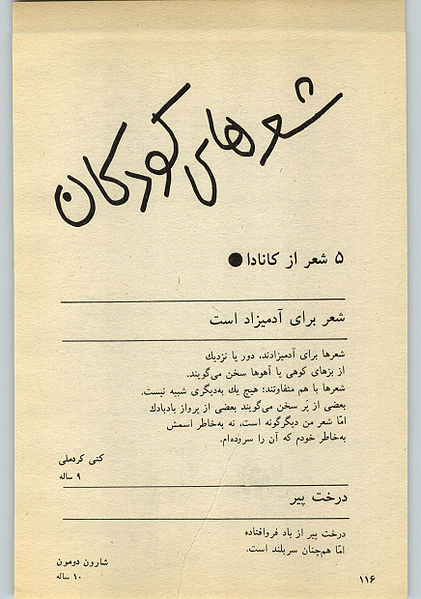 شعرهای کودکان
۵ شعر از کانادا ●
شعر برای آدمیزاد است
شعرها برای آدمیزادند، دور یا نزدیك
از بزهای کوهی یا آهوها سخن می‌گویند.
شعرها با هم متفاوتند؛ هیچ یك به‌دیگری شبیه نیست.
بعضی از پَر سخن می‌گویند بعضی از پرواز بادبادك
امّا شعر من دیگرگونه است، نه به‌خاطر اسمش
به‌خاطر خودم که آن را سروده‌ام.
کتی کرد‌ملی
۹ ساله
درخت پیر
درخت پیر از باد فروافتاده
امّا هم‌چنان سربلند است.
شارون دومون
۱۰ ساله
۱۱۶